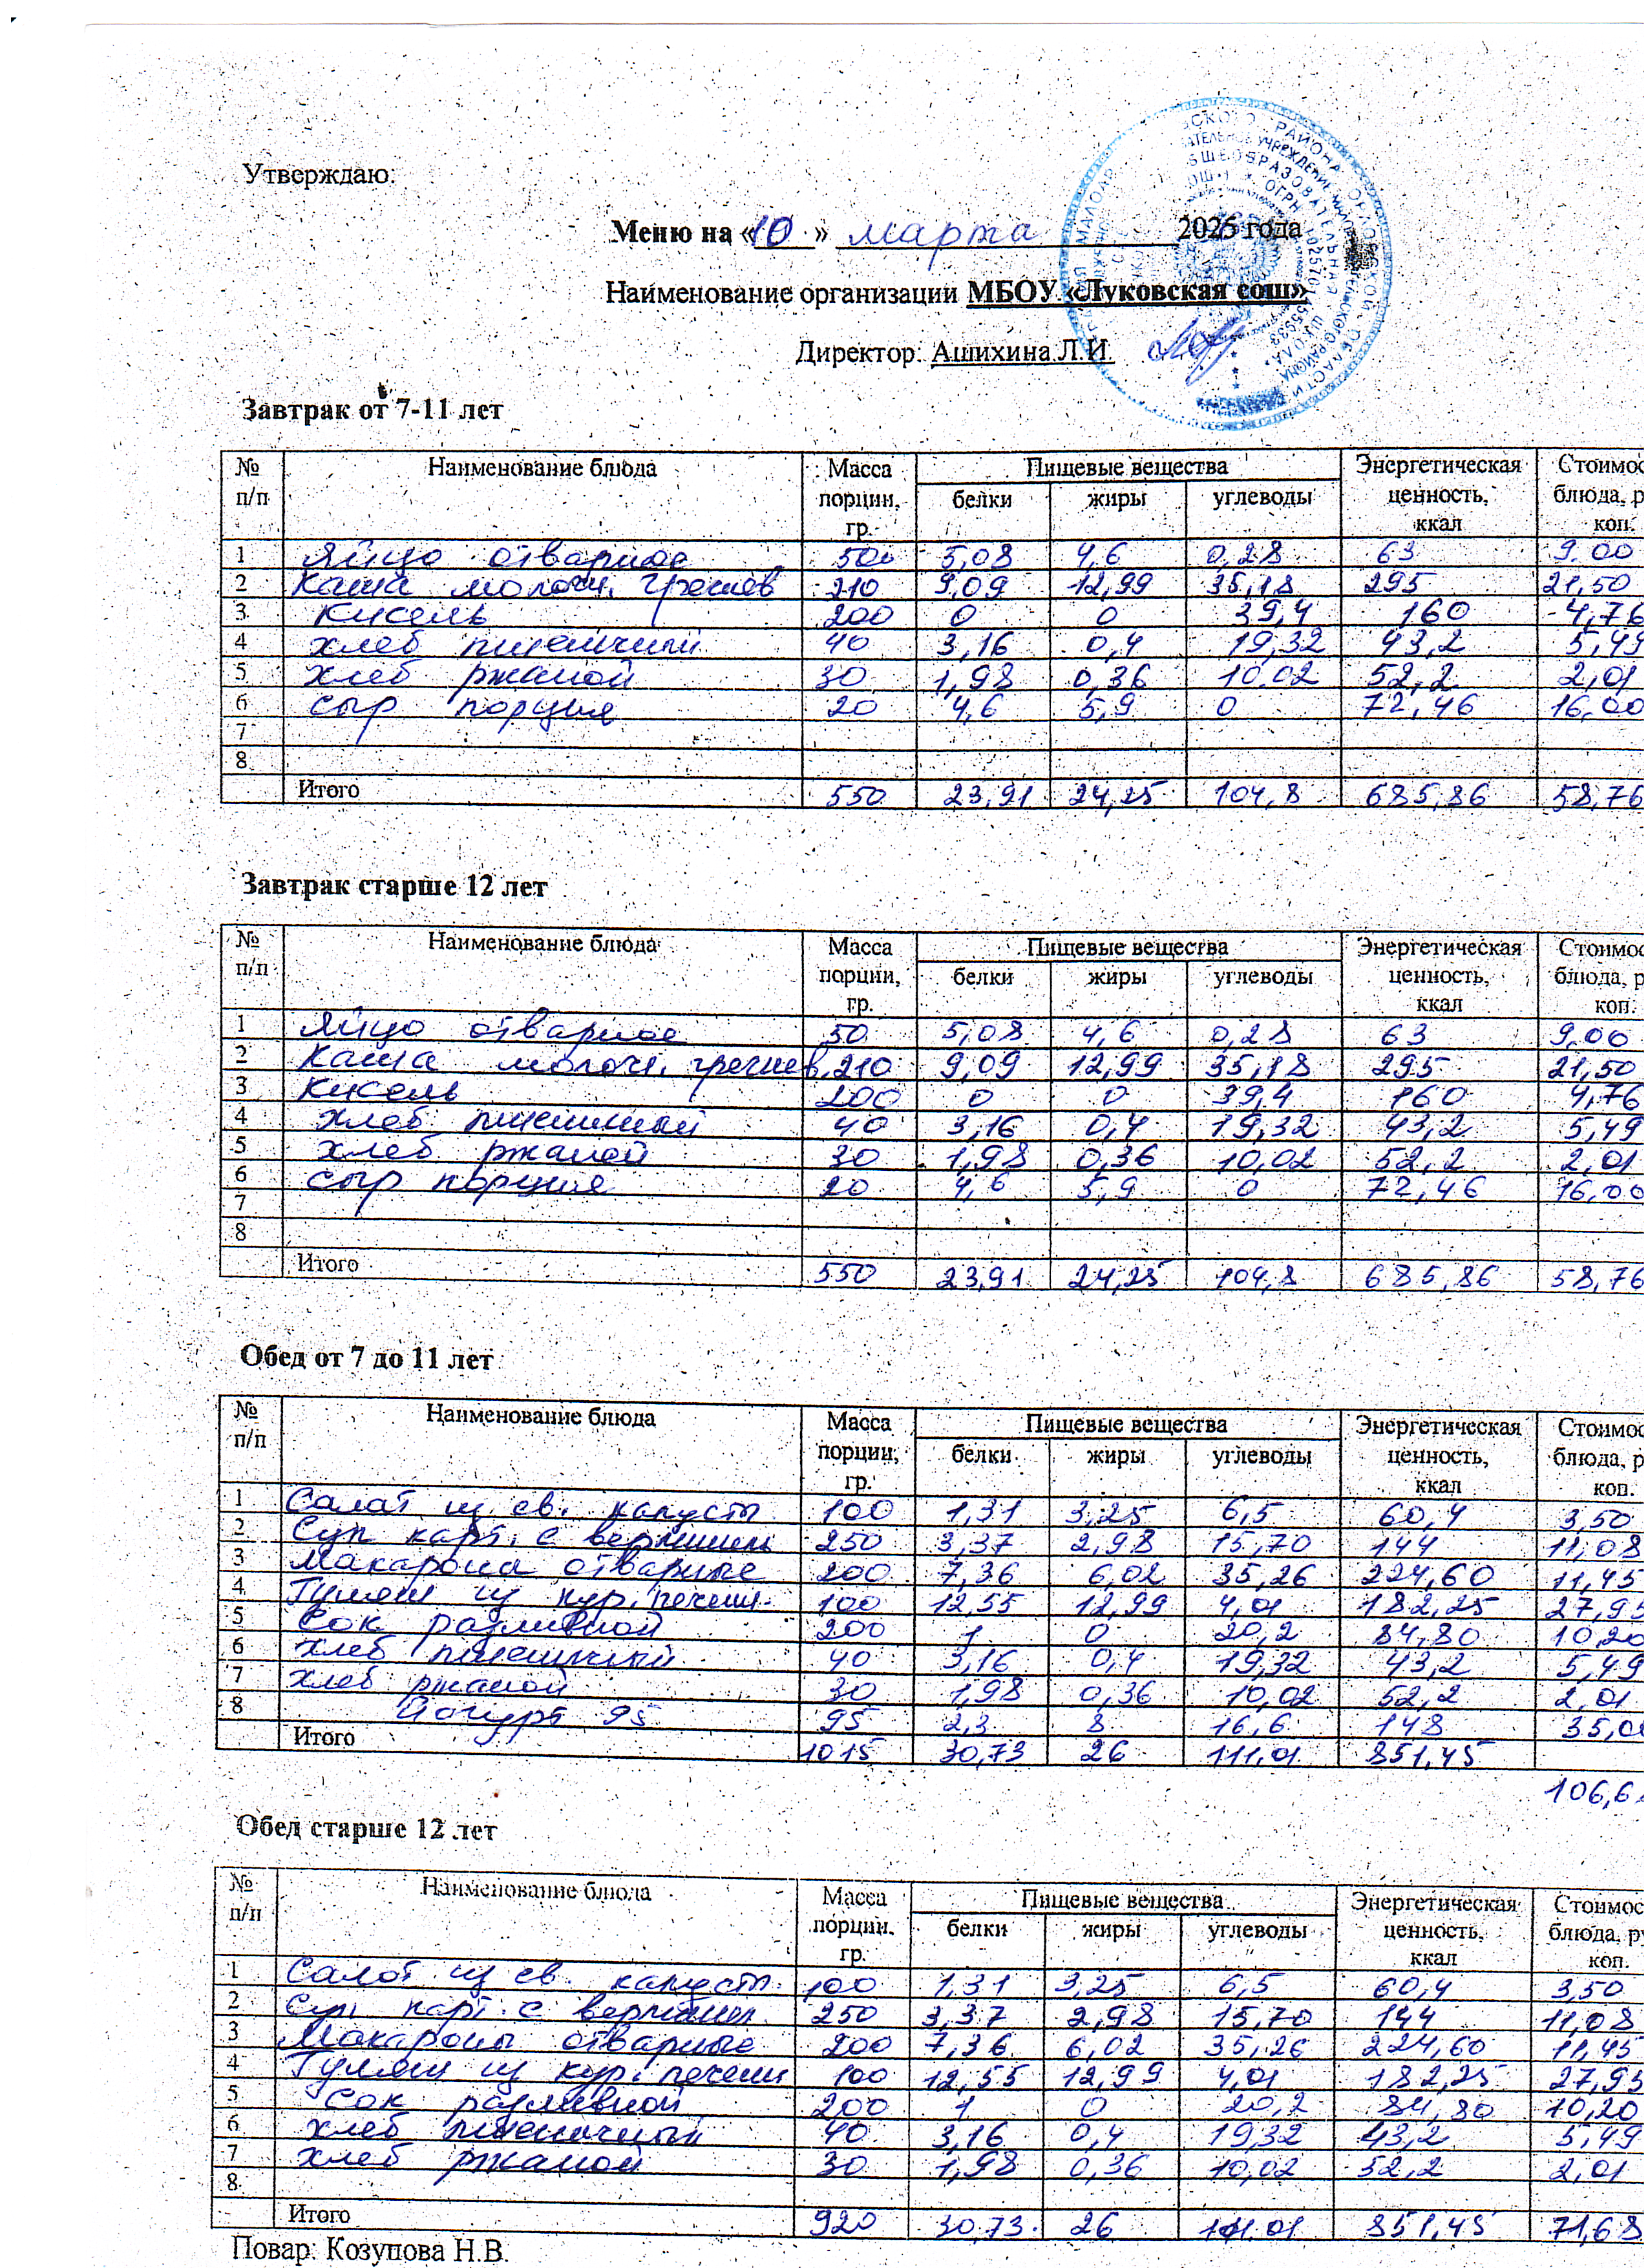 Утверждаю:
Меню на «10» марта 2025 года
Наименование организации МБОУ «Луковская сош»
Директор: Ашихина Л.И
Завтрак от 7-11 лет
№ п/п Наименование блюда Масса порции, гр. Пищевые вещества белки жиры углеводы Энергетическая ценность, ккал Стоимос блюда, р коп.
1 Яйцо отварное 500 5,08 4,6 0,28 63 9.00
2 Каша молочн. гречнев 210 9,09 12,99 35,18 295 21,50
3 Кисель 200 0 0 39,4 160 4,76
4 хлеб пшеничный 40 3,16 0,4 19,32 43,2 5,49
5 хлеб ржаной 30 1,98 0,36 10.02 52,2 2,01
6 сыр порция 20 4,6 5,9 0 72,46 16,00
7
8
Итого 550 23,91 24,25 104,8 685,86 58,76
Завтрак старше 12 лет
№ п/п Наименование блюда Масса порции, гр. Пищевые вещества белки жиры углеводы Энергетическая ценность, ккал Стоимос блюда, р коп.
1 Яйцо отварное 50 5,08 4,6 0,28 63 9,00
2 Каша молочн. гречнев. 210 9,09 12,99 35,18 295 21,50
3 Кисель 200 0 0 39,4 160 4,76
4 хлеб пшеничный 40 3,16 0,4 19,32 43,2 5,49
5 хлеб ржаной 30 1,98 0,36 10,02 52,2 2,01
6 сыр порция 20 4,6 5,9 0 72,46 16,00
7
8
Итого 550 23,91 24,25 104,8 685,86 58,76
Обед от 7 до 11 лет
№ п/п Наименование блюда Масса порции, гр. Пищевые вещества белки жиры углеводы Энергетическая ценность, ккал Стоимос блюда, р коп.
1 Салат из св. капусты 100 1,31 3,25 6,5 60,4 3,50
2 Суп карт. с вермишел 250 3,37 2,98 15,70 144 11,08
3 Макарона отварные 200 7,36 6,02 35,26 224,60 11,45
4 Гуляш из кур. печени 100 12,55 12,99 4,01 182,25 27,95
5 Сок разливной 200 1 0 20,2 84,80 10,20
6 хлеб пшеничный 40 3,16 0,4 19,32 43,2 5,49
7 хлеб ржаной 30 1,98 0,36 10,02 52,2 2,01
8 Йогурт 95 95 2,3 8 16,6 148 35,0
Итого 1015 30,73 26 111,01 851,45
106,6
Обед старше 12 лет
№ п/п Наименование блюда Масса порции, гр. Пищевые вещества белки жиры углеводы Энергетическая ценность, ккал Стоимос блюда, ру коп.
1 Салат из св. капусты 100 1,31 3,25 6,5 60,4 3,50
2 Суп карт. с вермишел 250 3,37 2,98 15,70 144 11,08
3 Макароны отварные 200 7,36 6,02 35,26 224,60 11,45
4 Гуляш из кур. печени 100 12,55 12,99 4,01 182,25 27,95
5 Сок разливной 200 1 0 20,2 84,80 10,20
6 хлеб пшеничный 40 3,16 0,4 19,32 43,2 5,49
7 хлеб ржаной 30 1,98 0,36 10,02 52,2 2,01
8
Итого 920 30,73 26 111.01 851,45 71,68
Повар: Козупова Н.В.